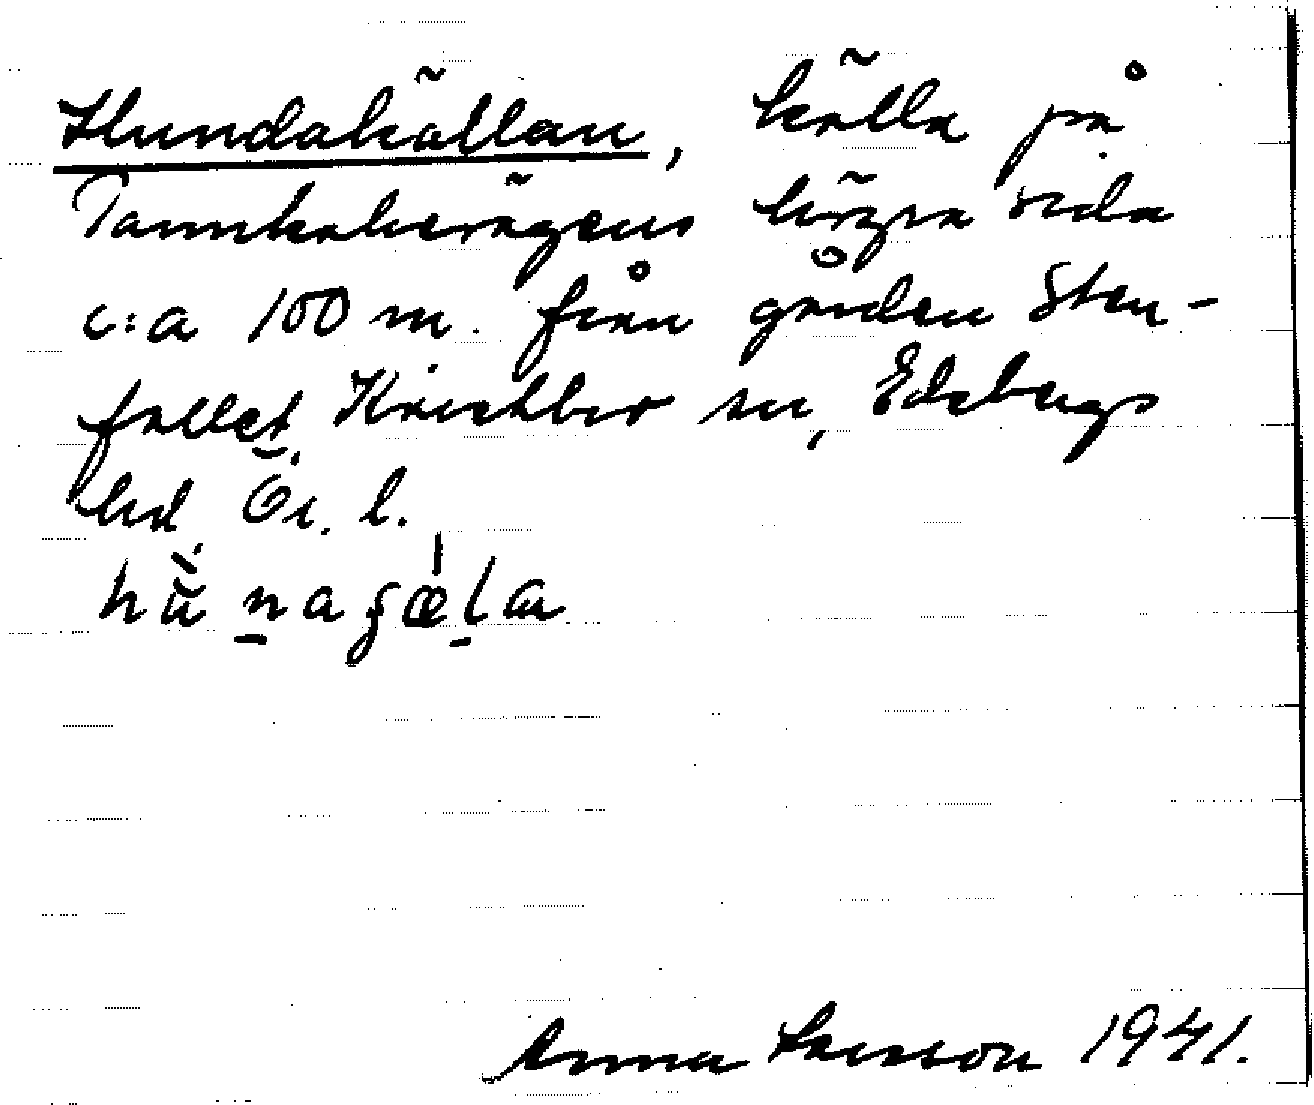 Hundakällan, källa på
Tannkabervägens högra sida
c:a 100 m. från gården Sten-
fallet, Knistabro sn, Edsbergs
hd, Ör. l.
Anna Larsson 1941.